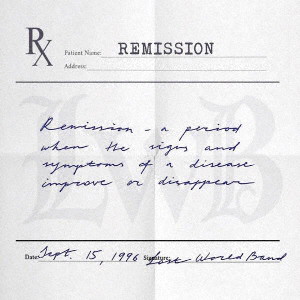 Rx
Patient Name: REMISSION
Address:
Remission - a period
when the signs and
symptoms of a disease
improve or disappear
LWB
Date: Sept. 15, 1996 Signature: Lost World Band